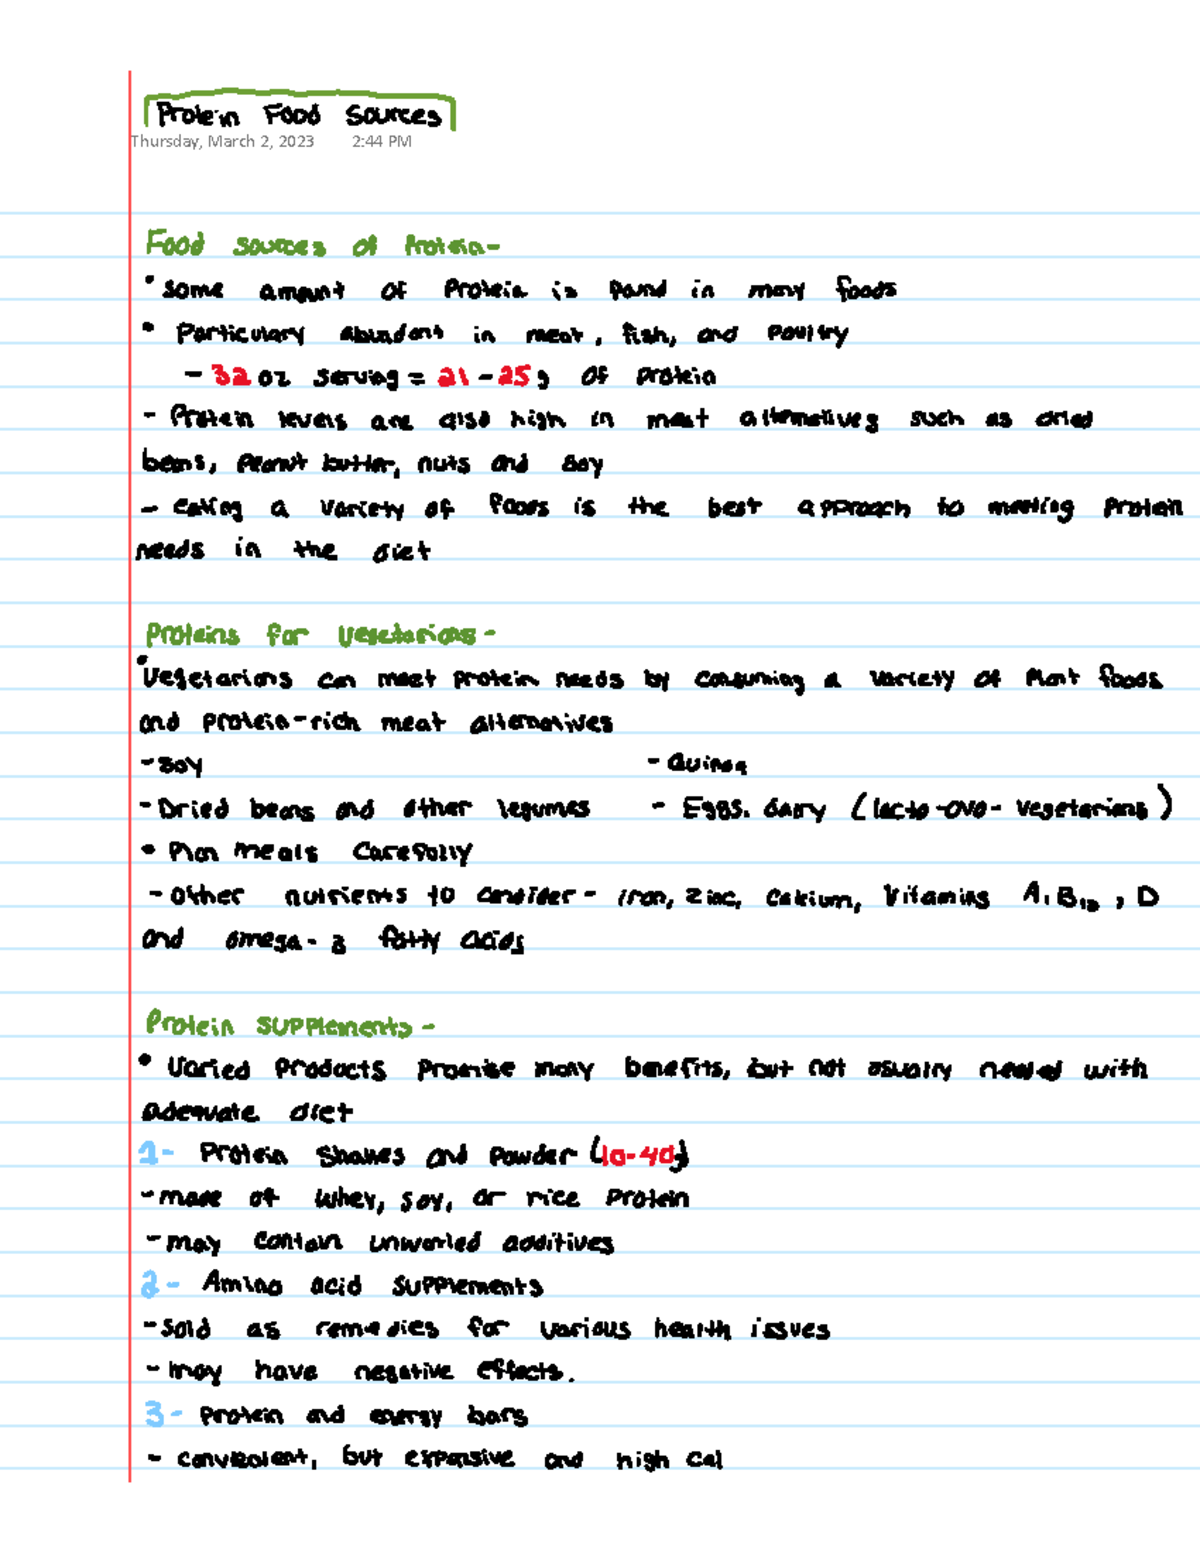 Protein Food Sources
Thursday, March 2, 2023 2:44 PM
Food sources of Protein-
• some amount of Protein is found in many foods
• Particulary abundant in meat, fish, and Poultry
- 32 oz serving = 21-25g of protein
- Protein levels are also high in meat alternatives such as dried
beans, Peanut butter, nuts and soy
- eating a variety of foods is the best approach to meeting Protein
needs in the diet
Proteins for vegetarians-
• Vegetarians can meet protein needs by consuming a variety of Plant foods
and protein-rich meat alternatives
- soy - Quinoa
- Dried beans and other legumes - Eggs. dairy (lacto-ovo-vegetarians)
• Plan meals Carefully
- other nutrients to consider- iron, zinc, calcium, Vitamins A, B12, D
and omega-3 fatty acids
Protein supplements-
• Varied Products Promise many benefits, but not usually needed with
adequate diet
1- Protein shakes and powder (10-40g)
- made of whey, soy, or rice Protein
- may contain unwanted additives
2- Amino acid supplements
- sold as remedies for various health issues
- may have negative effects.
3- Protein and energy bars
- convenient, but expensive and high cal